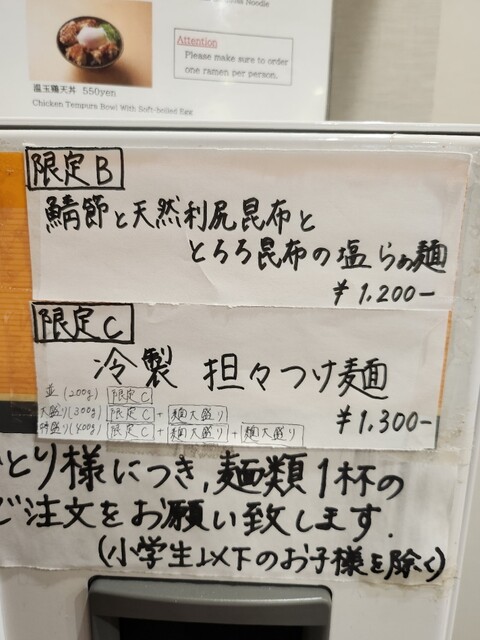 Noodle
Attention
Please make sure to order
one ramen per person.
温玉鶏天丼 550yen
Chicken Tempura Bowl With Soft-boiled Egg
限定B
鯖節と天然利尻昆布と
とろろ昆布の塩らぁ麺
¥1.200-
限定C
冷製 担々つけ麺
並(200g) 限定C
大盛り(300g) 限定C + 麺大盛り
特盛り(400g) 限定C + 麺大盛り + 麺大盛り
¥1.300-
とり様につき,麺類1杯の
ご注文をお願い致します.
(小学生以下のお子様を除く)